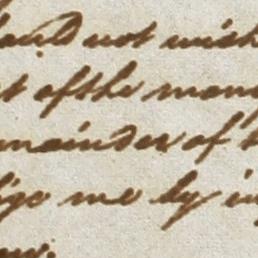 ould not wish
t of the mon
mainder of t
ige me by in